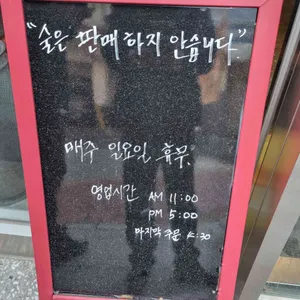 "술은 판매 하지 안습니다."
매주 일요일 휴무.
영업시간 AM 11:00
PM 5:00
마지막 주문 4:30